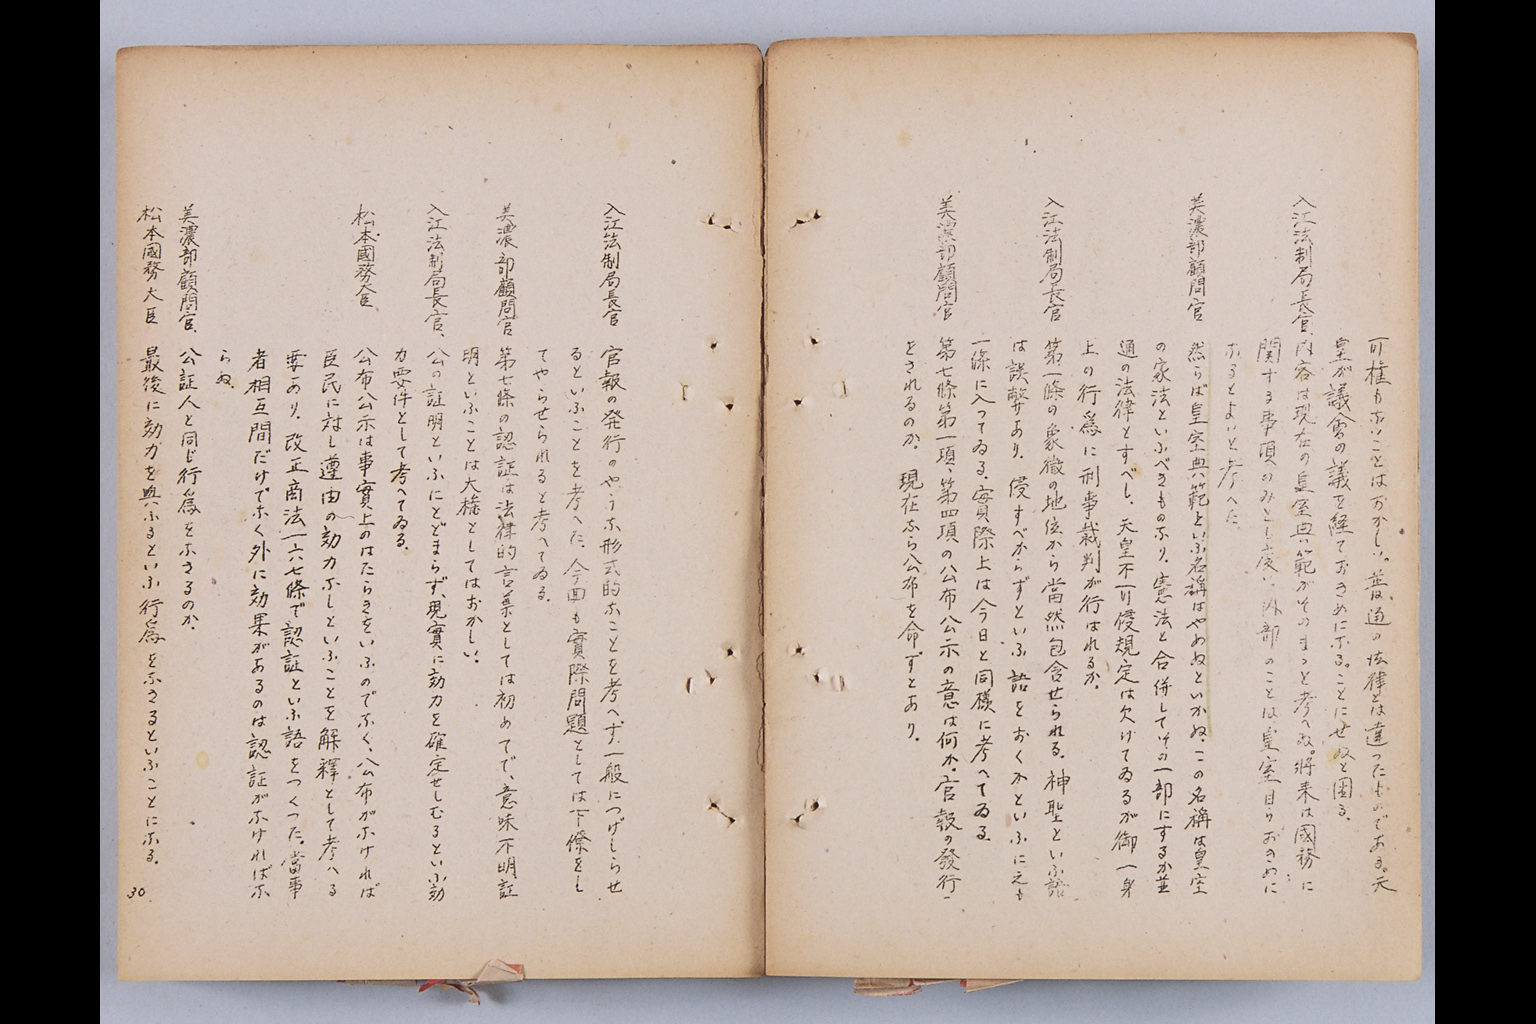 可権もないことはおかしい。普通の法律とは違つたものである。天
皇が議會の議を経ておきめになる。ことにせぬと困る。
入江法制局長官、内容は現在の皇室典範がそのまゝと考へぬ。将来は國務に
関する事項へのみとし度い。外部のことは皇室自らおきめに
なるとよいと考へた
美濃部顧問官 然らば皇室典範といふ名稱はやめぬといかぬ、この名稱は皇室
の家法といふべきものなり、憲法と合併してその一部にするか普
通の法律とすべし、天皇不可侵規定は欠けてゐるが御一身
上の行爲に刑事裁判が行はれるか。
入江法制局長官 第一條の象徴の地位から當然包含せられる。神聖といふ語
は誤弊あり、侵すべからずといふ語をおくかといふにえも
一條に入つてゐる。実際上は今日と同様に考へてゐる
美濃部顧問官 第七條第一項、第四項の公布公示の意は何か。官報の發行
をされるのか、現在なら公布を命ずとあり。
入江法制局長官 官報の発行のやうな形式的なことを考へず、一般につげしらせ
るといふことを考へた、今回も實際問題としては下僚をし
てやらせられると考へてゐる。
美濃部顧問官 第七條の認証は法律的言葉としては初めてで、意味不明、証
明といふことは大権としてはおかしい。
入江法制局長官、公の証明といふにとどまらず、現實に効力を確定せしむるといふ効
力要件として考へてゐる。
松本國務大臣 公布公示は事實上のはたらきをいふのでなく、公布がなければ
臣民に対し遵由の効力なしといふことを解釋として考へる
要あり、改正商法一六七條で認証といふ語をつくつた。當事
者相互間だけでなく外に効果があるのは認証がなければな
らぬ
美濃部顧問官、公証人と同じ行爲をなさるのか、
松本國務大臣 最後に効力を與ふるといふ行爲をなさるといふことになる。
30